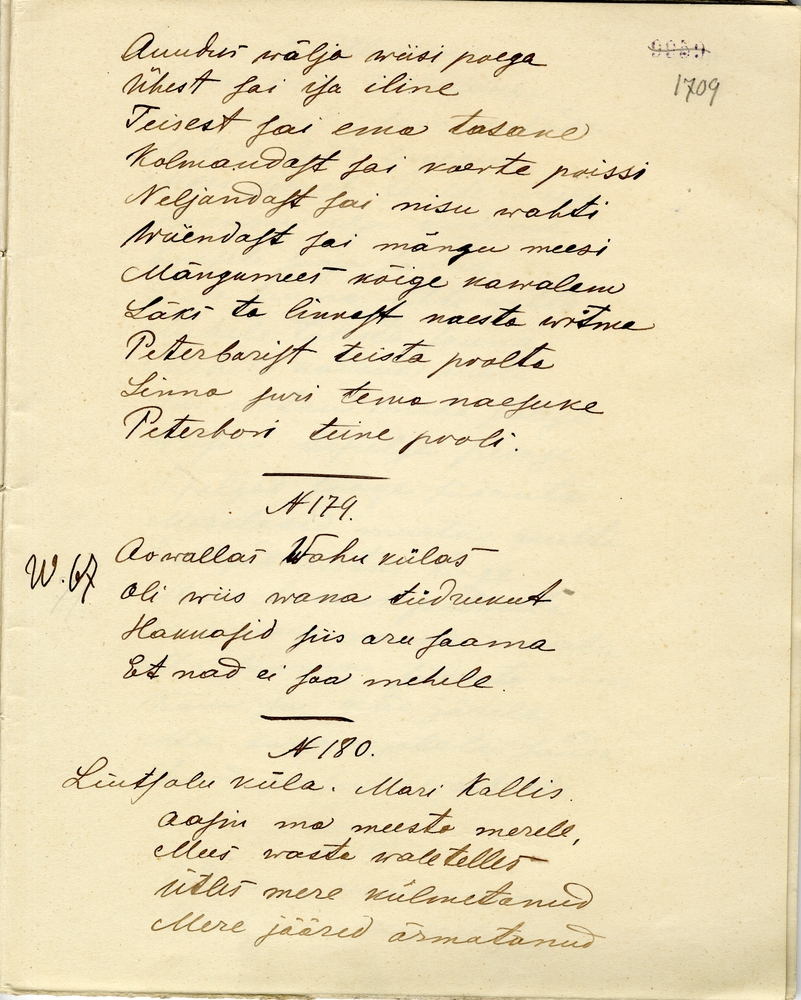 9959
1709
Auudus wälja wiisi poega
Ühest sai isa iline
Teisest sai ema tasane
Kolmandast sai koerte poissi
Neljandast sai nisu wahti
Wiiendast sai mängu meesi
Mängumees kõige kawalam
Läks ta linnast naesta wõtma
Peterburist teista poolta
Linna suri tema naesuke
Peterburi teine pooli.
N 179.
W. 67
Aowallas Wahu külas
Oli wiis wana tüdrukut
Hakkasid siis aru saama
Et nad ei saa mehele.
N 180.
küla. Mari Kallis.
Aasin ma meesta merele,
Mees wasta waletelles
Ütles mere külmetanud
Mere jääred ärmatanud